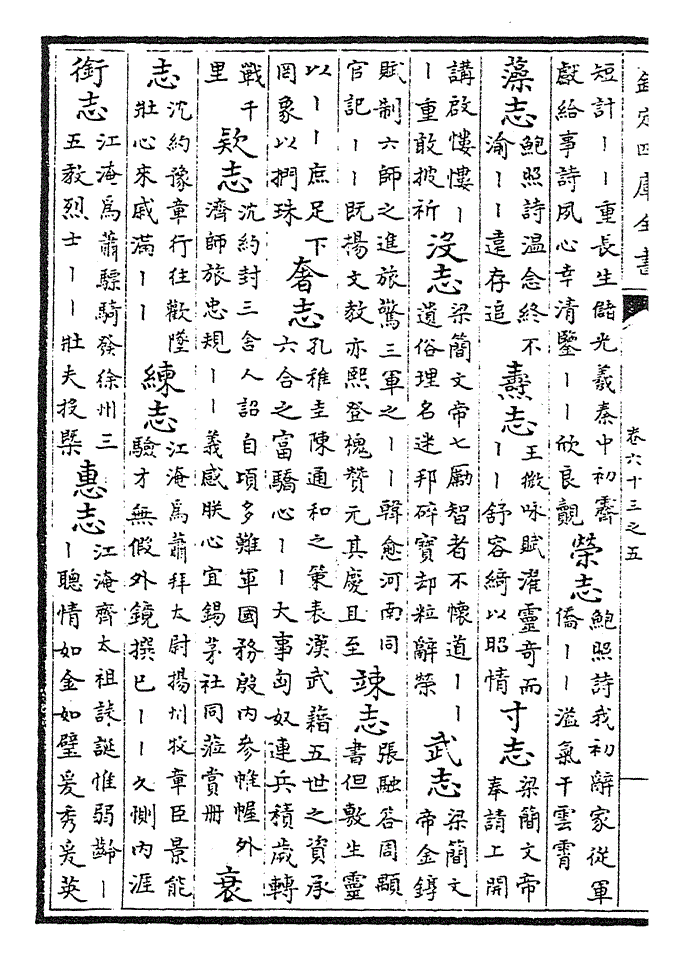 欽定四庫全書
卷六十三之五
短計丨丨重長生儲光羲秦中初霽
獻給事詩夙心幸清鑒丨丨欣良覿
榮志
鮑照詩我初辭家從軍
僑丨丨溢氣干雲霄
藻志
鮑照詩温念終不
渝丨丨遠存追
燾志
王微咏賦濯靈奇而
丨丨舒容綺以昭情
寸志
梁簡文帝
奉請上開
講啟慺慺丨
丨重敢披祈
沒志
梁簡文帝七勵智者不懷道丨丨
遺俗理名迷邦碎寶却粒辭榮
武志
梁簡文
帝金錞
賦制六師之進旅驚三軍之丨丨韓愈河南同
官記丨丨既揚文教亦熙登槐贊元其慶且至
竦志
張融答周顒
書但敷生靈
以丨丨庶足下
罔象以捫珠
奢志
孔稚圭陳通和之策表漢武藉五世之資承
六合之富驕心丨丨大事匈奴連兵積歲轉
戰千
里
欵志
沈約封三舍人詔自頃多難軍國務殷内參帷幄外
濟師旅忠規丨丨義感朕心宜錫茅社同蒞賞册
衰
志
沈約豫章行往歡墜
壯心來戚滿丨丨
練志
江淹為蕭拜太尉揚州牧章臣景能
驗才無假外鏡撰已丨丨久惻内涯
銜志
江淹為蕭驃騎發徐州三
五教烈士丨丨壯夫投槩
惠志
江淹齊太祖誄誕惟弱齡丨
丨聰情如金如璧爰秀爰英